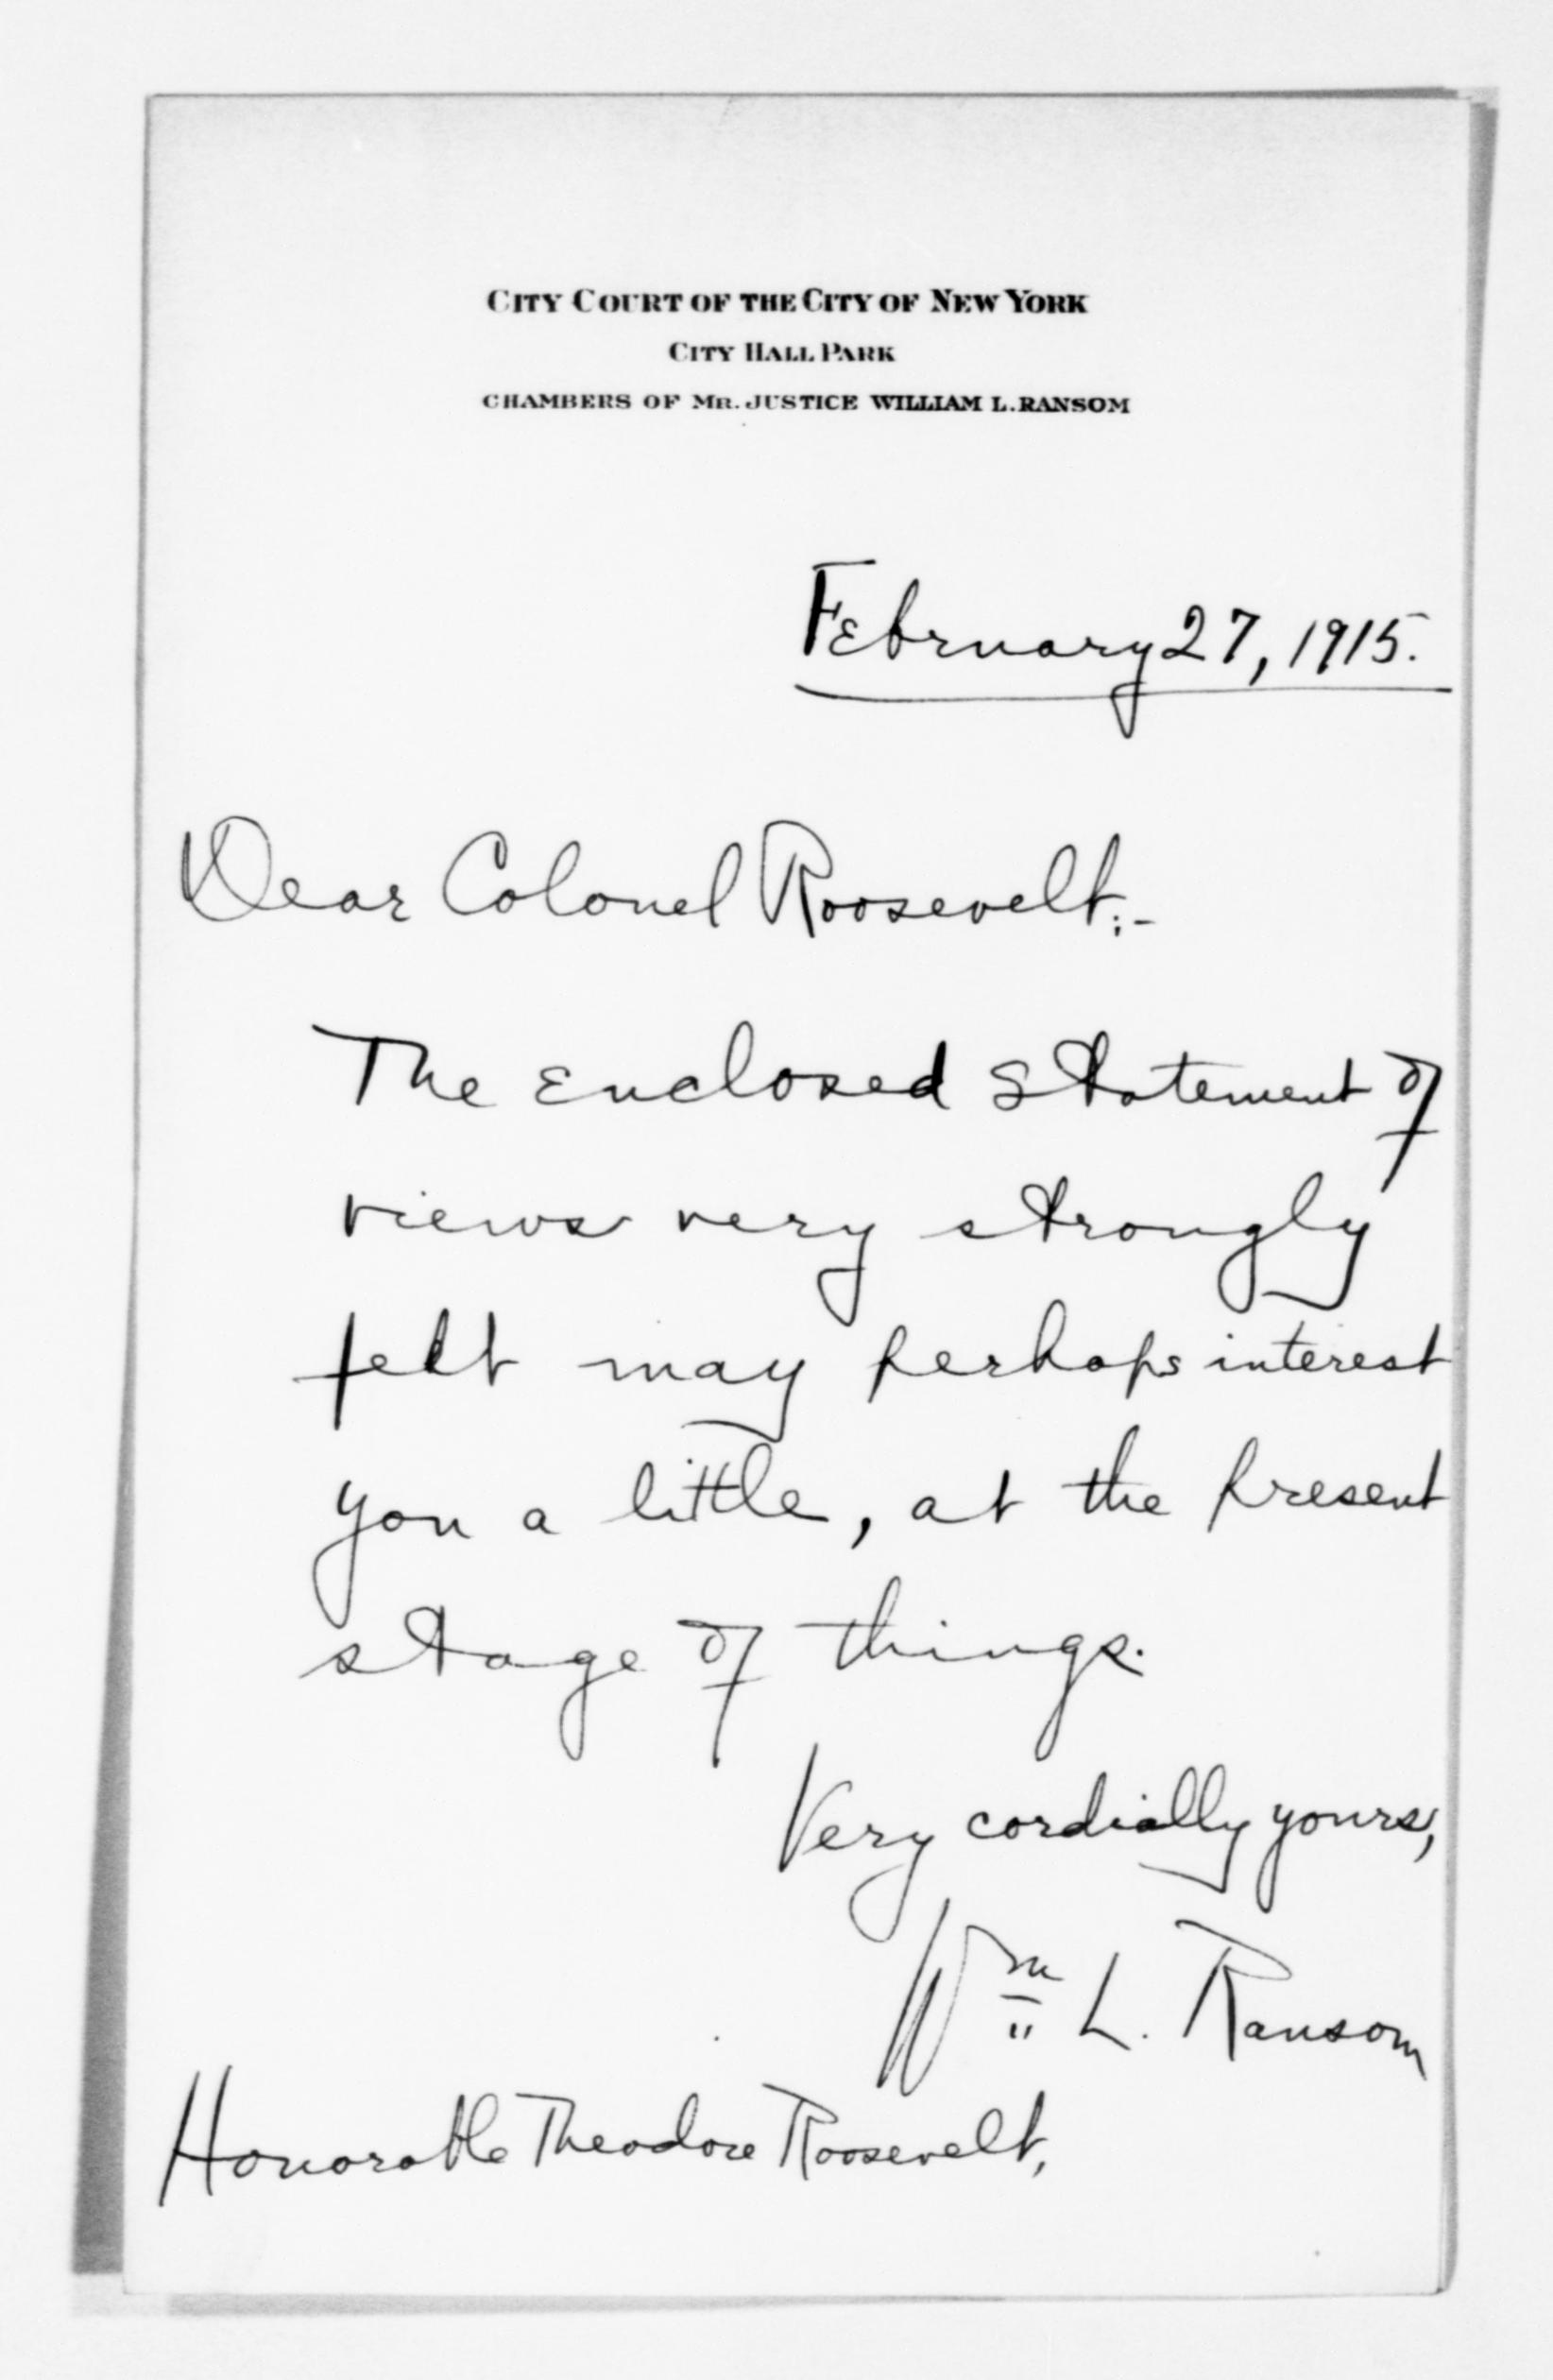 CITY COURT OF THE CITY OF NEW YORK
CITY HALL PARK
CHAMBERS OF MR. JUSTICE WILLIAM L. RANSOM
February 27, 1915.
Dear Colonel Roosevelt:-
The enclosed statement of
views very strongly
felt may perhaps interest
you a little, at the present
stage of things.
Very cordially yours,
Wm L. Ransom
Honorable Theodore Roosevelt,